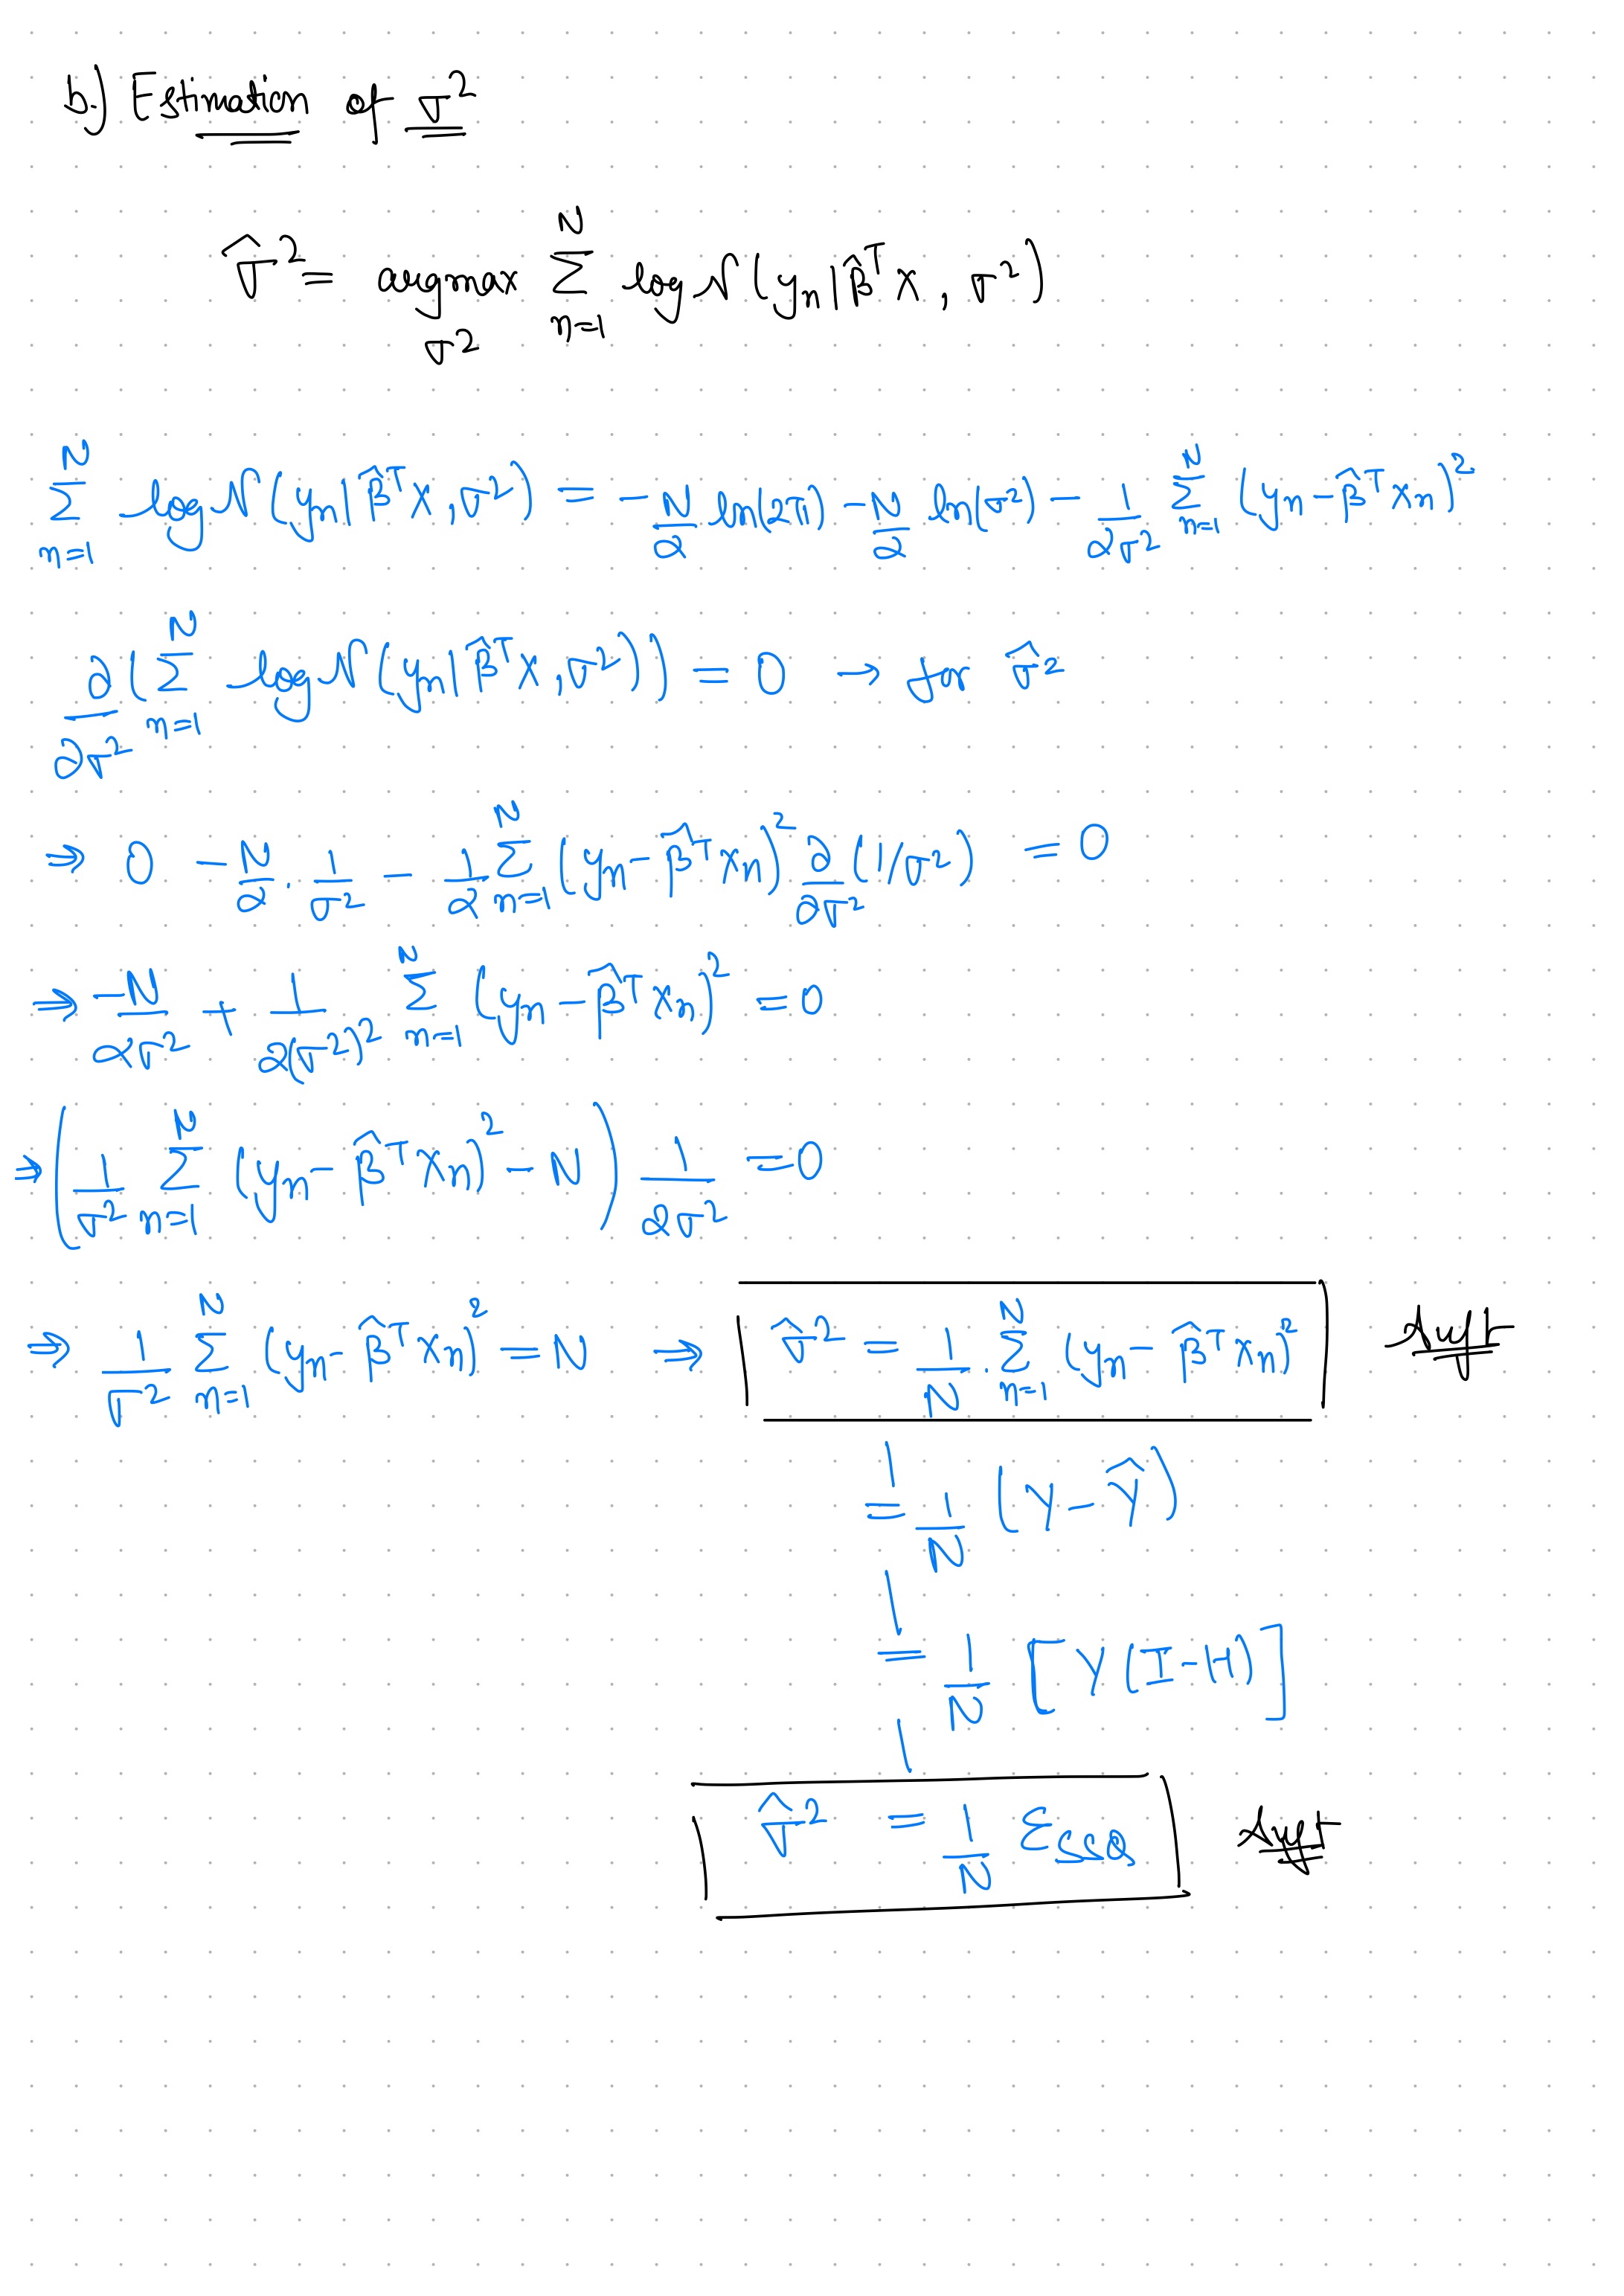 b.) Estimation of σ²
σ̂² = argmax_{σ²} Σ_{n=1}^{N} log N(yₙ | β̂ᵀ x, σ²)
Σ_{n=1}^{N} log N(yₙ | β̂ᵀ x, σ²) = -N/2 ln(2π) - N/2 ln(σ²) - 1/(2σ²) Σ_{n=1}^{N} (yₙ - β̂ᵀ xₙ)²
∂/∂σ² (Σ_{n=1}^{N} log N(yₙ | β̂ᵀ x, σ²)) = 0 → for σ̂²
⇒ 0 - N/2 · 1/σ² - 1/2 Σ_{n=1}^{N} (yₙ - β̂ᵀ xₙ)² ∂/∂σ² (1/σ²) = 0
⇒ -N/(2σ²) + 1/(2(σ²)²) Σ_{n=1}^{N} (yₙ - β̂ᵀ xₙ)² = 0
⇒ (1/σ² Σ_{n=1}^{N} (yₙ - β̂ᵀ xₙ)² - N) 1/(2σ²) = 0
⇒ 1/σ² Σ_{n=1}^{N} (yₙ - β̂ᵀ xₙ)² = N ⇒ σ̂² = 1/N · Σ_{n=1}^{N} (yₙ - β̂ᵀ xₙ)²
= 1/N (Y - Ŷ)
= 1/N [Y(I-H)]
σ̂² = 1/N ε_{SSQ}